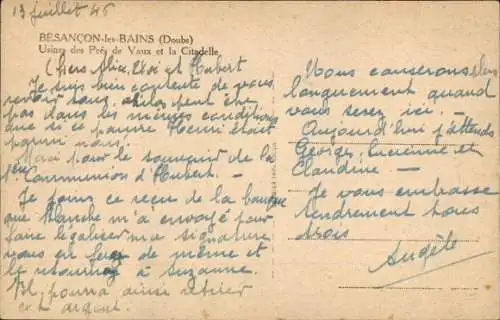 13 juillet 46
BESANÇON-les-BAINS (Doubs)
Usines des Prés de Vaux et la Citadelle
Chers Alice, et Hubert
Je suis bien contente de vous
revoir tous, peut être
pas dans les mêmes conditions
que si ce pauvre Henri était
parmi nous.
Merci pour le souvenir de la
1ère Communion d'Hubert. —
Je joins ce reçu de la banque
que Blanche m'a envoyé pour
faire légaliser ma signature
vous en ferez de même et
le retournez à Suzanne.
Il pourra ainsi retirer
cet argent.
Nous causerons plus
longuement quand
vous serez ici. —
Aujourd'hui j'attends
Georges, Lucienne et
Claudine. —
Je vous embrasse
tendrement tous
trois
Angèle